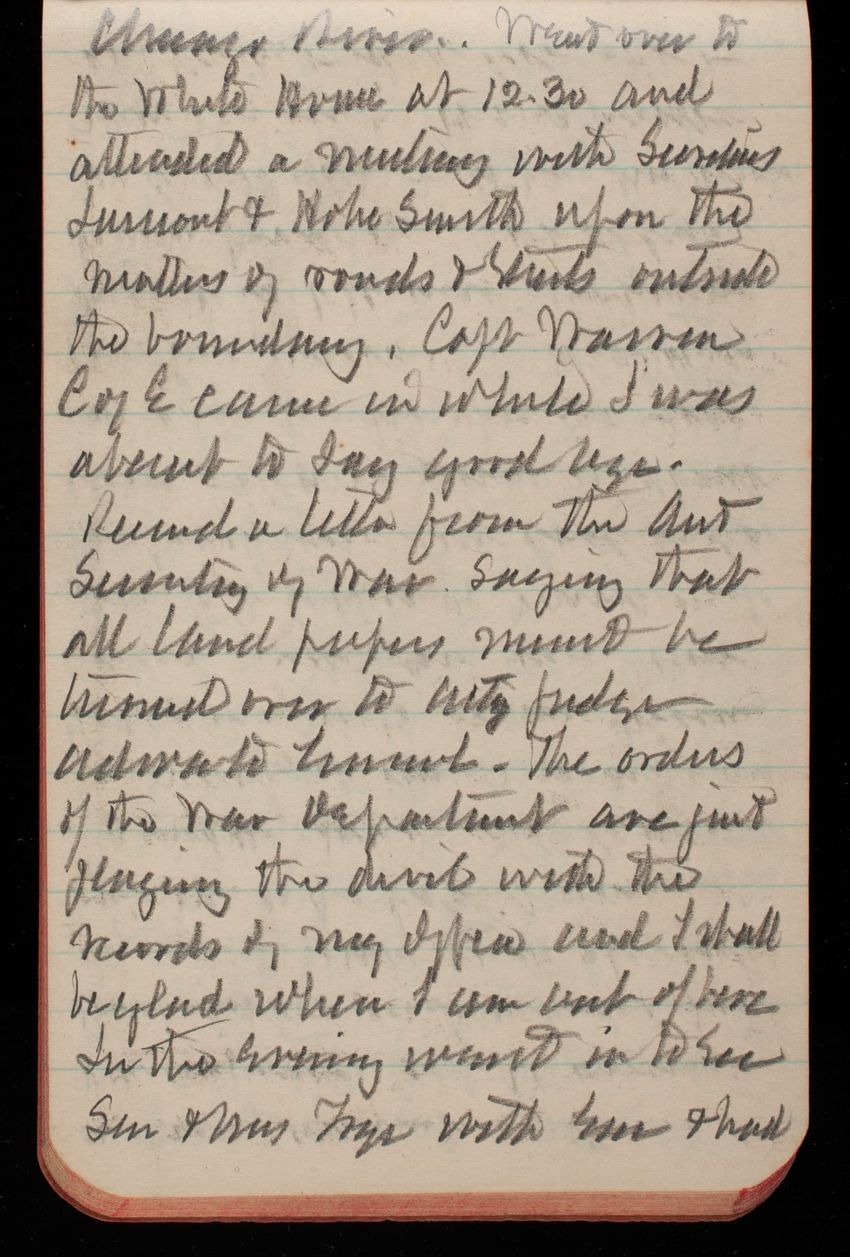 Chicago River. Went over to
the White House at 12.30 and
attended a meeting with Secretaries
Lamont & Hoke Smith upon the
matters of roads & Streets outside
the boundary. Capt Warren
C of E came in while I was
about to say good bye.
Received a letter from the Asst
Secretary of War saying that
all land papers must be
turned over to Actg Judge
Advocate General. The orders
of the War Department are just
playing the devil with the
records of my Office and I shall
be glad when I am out of here
In the evening went in to see
Sen & Mrs Frye with Em & had